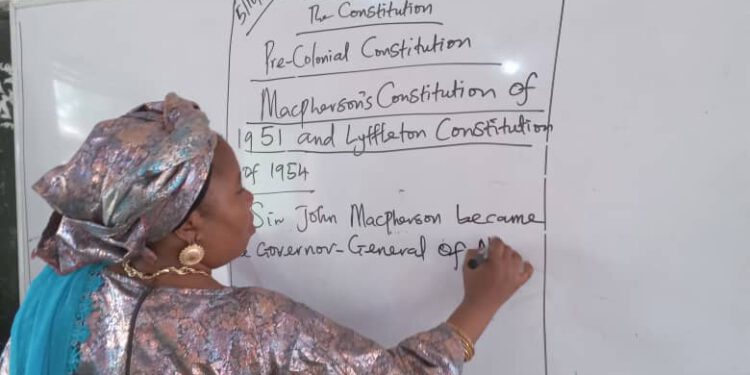 The Constitution
Pre-Colonial Constitution
Macpherson's Constitution of
1951 and Lyffleton Constitution
of 1954
Sir John Macpherson became
Governor-General of